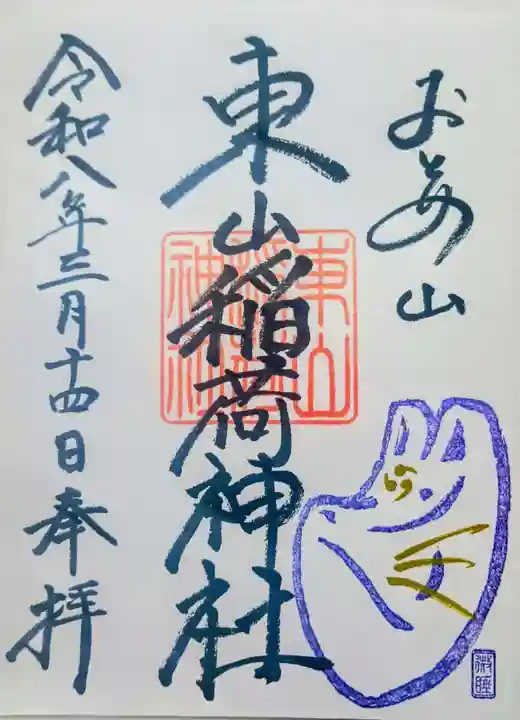 おとめ山
東山稲荷神社
東山稲荷神社
令和八年三月十四日奉拝
微睡